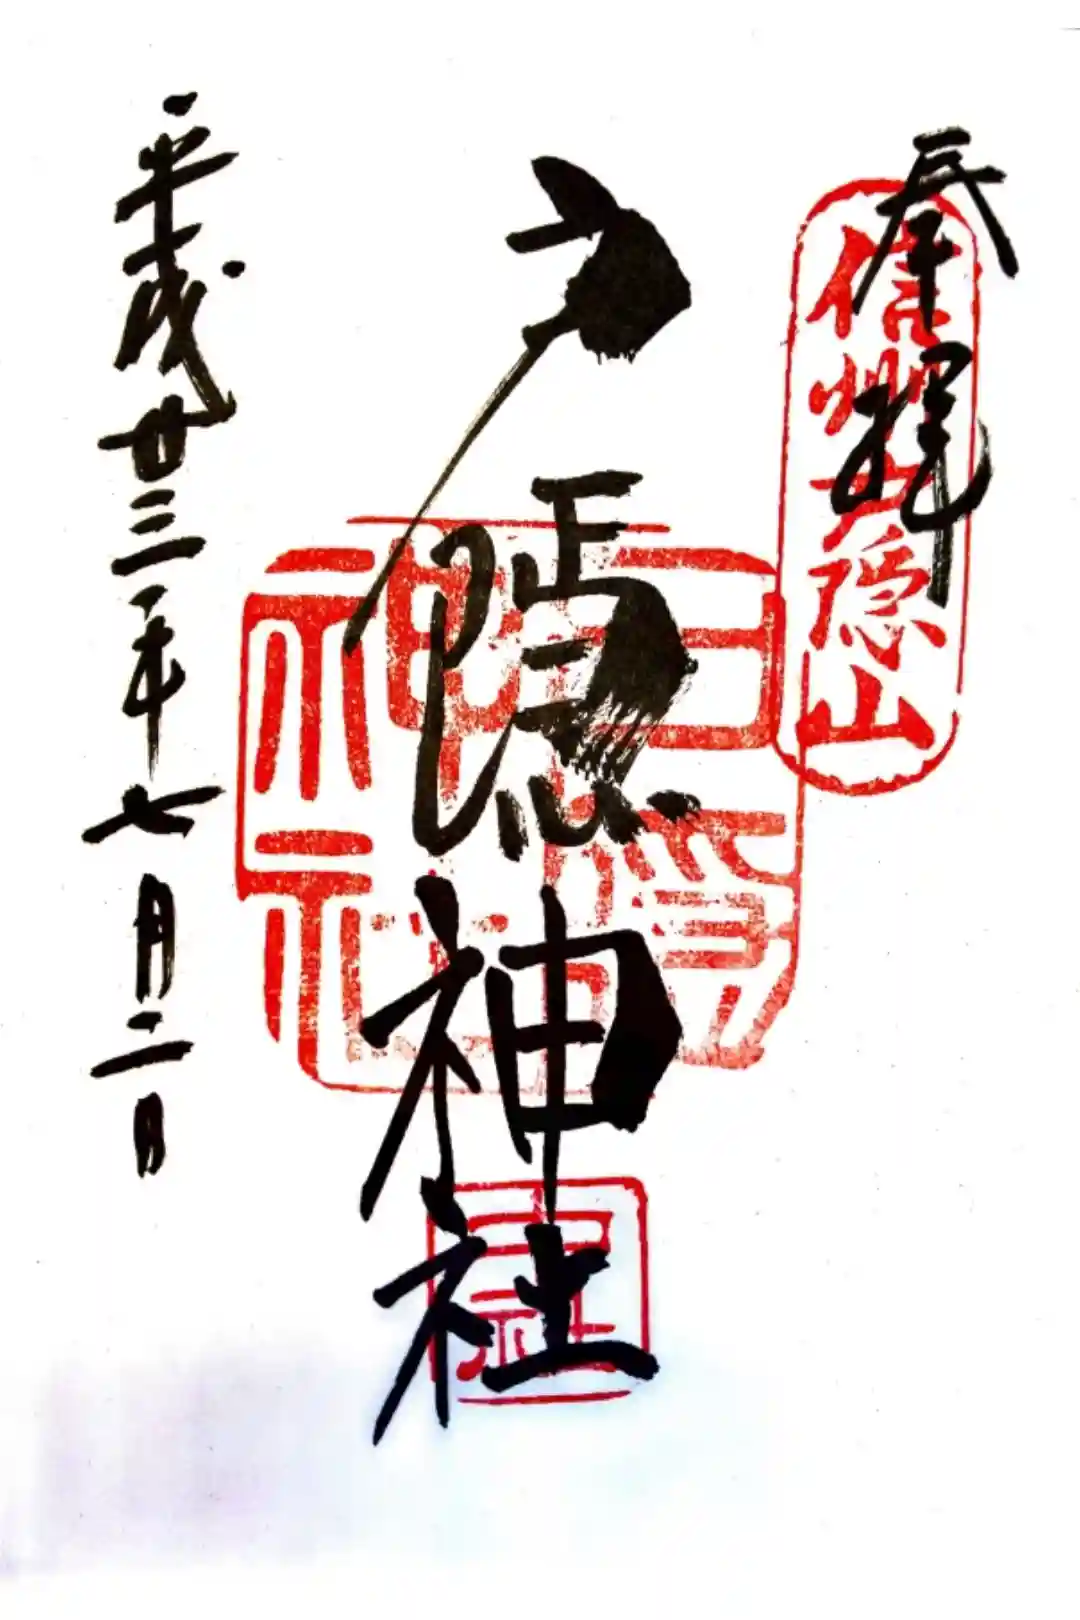 奉拝
信州戸隠山
戸隠神社
平成廿三年七月二日